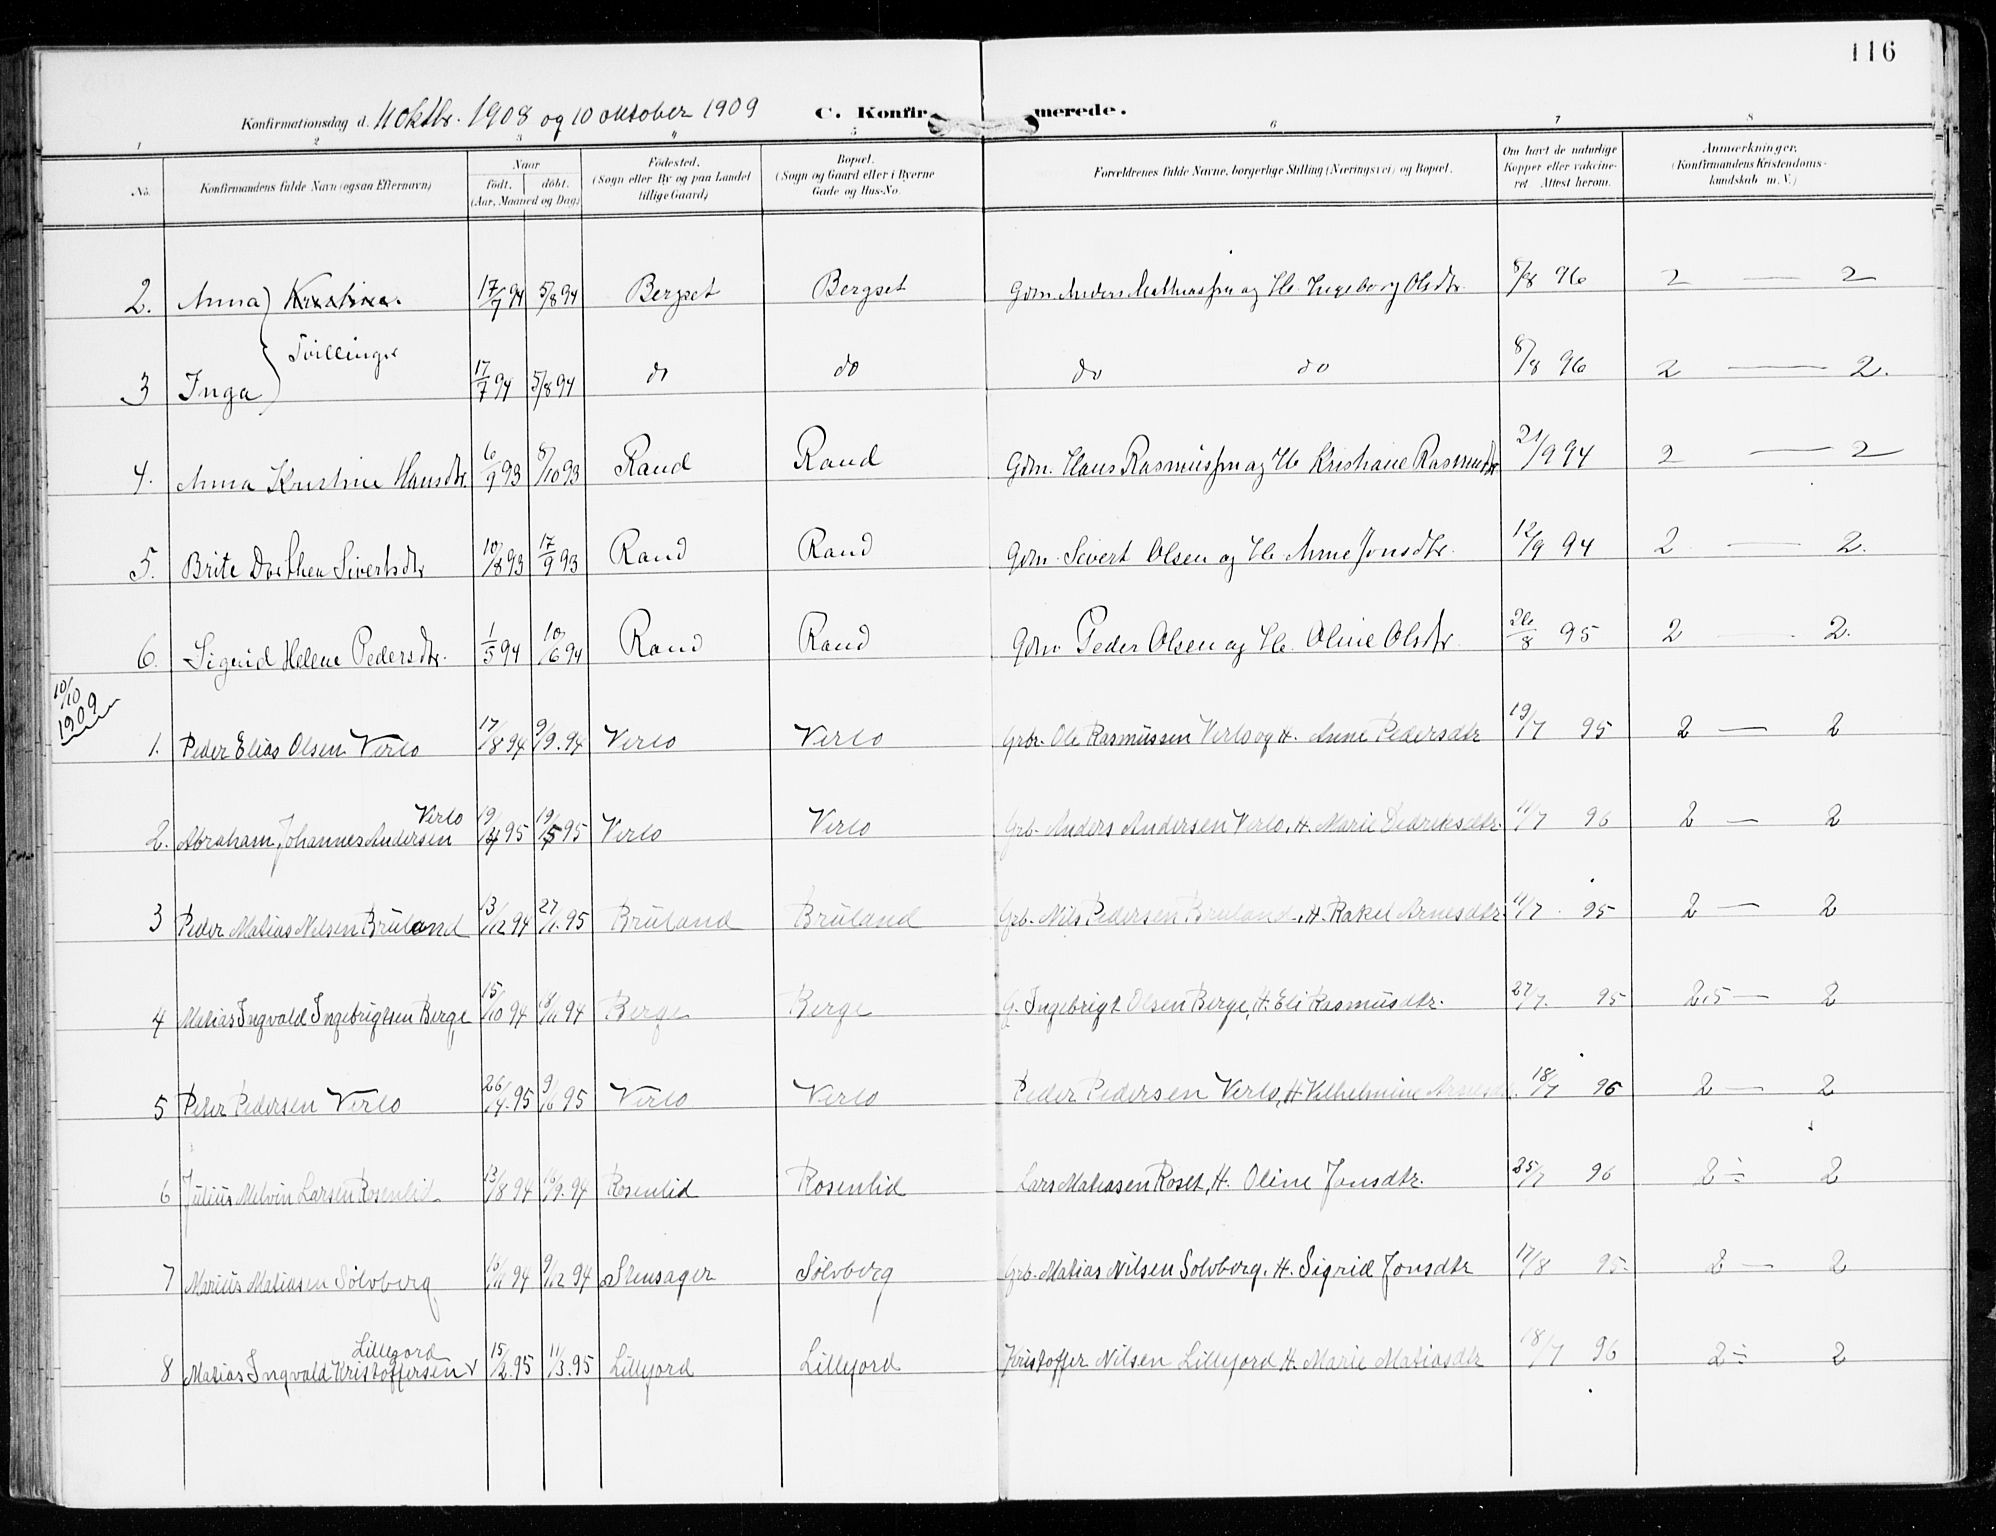 116
Konfirmationsdag d. 4 oktbr. 1908 og 10 oktober 1909 C. Konfirmerede.
1 2 3 4 5 6 7 8
No. Konfirmandens fulde Navn (ogsaa Efternavn) Naar födt. döbt. (Aar, Maaned og Dag) Födested. (Sogn eller By og paa Landet tillige Gaard) Bopæl. (Sogn og Gaard eller i Byerne Gade og Hus-No. Forældrenes fulde Navne, borgerlige Stilling (Næringsvei) og Bopæl. Om havt de naturlige Kopper eller vaccineret Attest herom. Anmærkninger. (Konfirmandens Kristendomskundskab m. V.)
2. Anna Kristina. 17/7 94 5/8 94 Bergset Bergset Gdm. Anders Mathiassen og Hu Ingeborg Olsdtr. 8/8 96 2 — 2
Tvillinger
3 Inga 17/7 94 5/8 94 do do do do 8/8 96 2 — 2.
4. Anna Kristine Hansdtr. 6/9 93 8/10 93 Rand Rand Gdm. Hans Rasmussen og Hu Kristiane Rasmusdtr 21/9 94 2 — 2
5. Brite Dorthea Sivertsdtr 10/8 93 17/9 93 Rand Rand Gdm. Sivert Olsen og Hu Anne Jonsdtr. 12/9 94 2 2.
6. Sigrid Helene Pedersdtr. 1/5 94 10/6 94 Rand Rand Gdm. Peder Olsen og Hu. Oline Olsdtr. 26/8 95 2 — 2.
10/10 1909
1. Peder Elias Olsen Verlo 17/8 94 9/9. 94 Verlo Verlo Grbr. Ole Rasmussen Verlo og H. Anne Pedersdtr 19/7 95 2 — 2
Verlo
2. Abraham Johannes Andersen 19/4 95 19/5 95 Verlo Verlo Grb. Anders Andersen Verlo, H. Marie Dedriksdtr. 11/7 96 2 — 2
3 Peder Matias Nilsen Bruland 13/12 94 27/1. 95 Bruland Bruland Grb. Nils Pedersen Bruland, H. Rakel Arnesdtr. 11/7. 95 2 — 2
4 Matias Ingvald Ingebrigtsen Berge 15/10 94 18/11 94 Berge Berge G. Ingebrigt Olsen Berge, H. Eli Rasmusdtr. 27/7. 95 2,5 — 2
5 Peter Pedersen Verlo 26/4. 95 9/6 95 Verlo Verlo Peder Pedersen Verlo, H. Vilhelmine 18/7 96 2 — 2
6 Julius Melvin Larsen Rosenlid 13/8 94 16/9. 94 Rosenlid Rosenlid Lars Matiasen Roset, H. Oline Jonsdtr. 25/7 96 2 ÷ 2
7 Marius Matiasen Sölvberg 9/12 94 Stensager Sölvberg Grb. Matias Nilsen Solvberg. H. Sigrid Jonsdtr 17/8 95 2 — 2
Lillejord
8 Matias Ingvald Kristoffersen v 15/2. 95 11/3. 95 Lillejord Lillejord Kristoffer Nilsen Lillejord H. Marie Matiasdtr 18/7 96 2 ÷ 2